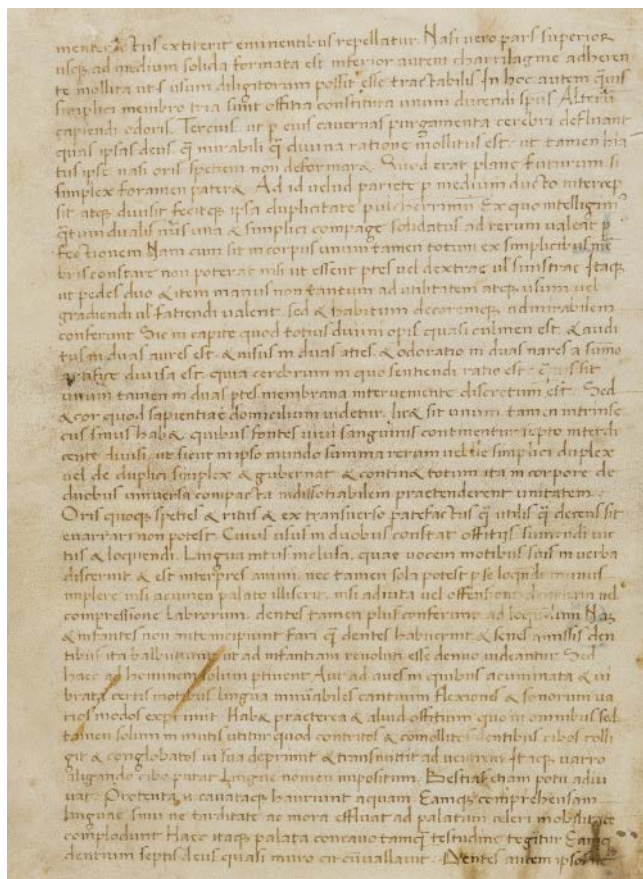 menter ictus extiterit eminentibus repellatur. Nasi vero pars superior
usq; ad medium solida formata est inferior autem chartilagine adheren
te mollita ut s usum digitorum possit esse tractabilis In hoc autem q̄uis
simplici membro tria sunt offitia constituta unum ducendi sp̄us Alterū
capiendi odoris. Tercius. ut p eius cavernas purgamenta cerebri defluant
quas ipsas deus. q̄ mirabili q̄ divina ratione mollitus est. ut tamen hia
tus ipse nasi oris spetiem non deformar&. Quod erat plane futurum si
simplex foramen pater&. Ad id velud pariete p medium ducto intersep
sit atq; divisit fecitq; ipsa duplicitate pulcherrimū Ex quo intelligim'
q̄tum dualis nūs una & simplici compage solidatus ad rerum valeat p
fectionem Nam cum sit in corpus unum tamen totum ex simplicibus mē
bris constare non poterat nisi ut essent ptes vel dextrae ul sinistrae Itaq;
ut pedes duo & item manus non tantum ad utilitatem atq; usum vel
gradiendi ul fatiendi valent. sed & habitum decoremq; admirabilem
conferunt Sic in capite quod totius divini opis quasi culmen est. & audi
tus in duas aures est. & visus in duas aties. & odoratio in duas nares a sūmo
artifice divisa est. quia cerebrum in quo sentiendi ratio est. sit
unum tamen in duas ptes membrana interveniente discretum est. Sed
& cor quod sapientiae domicilium videtur. lic& sit unum. tamen intrinse
cus sinus hab& quibus fontes vivi sanguinis continentur septo interdi
cente divisi. ut sicut in ipso mundo summa rerum vel de simplici duplex
vel de duplici simplex & gubernat & contin& totum ita in corpore de
duobus universa compacta indissotiabilem praetenderent unitatem.
Oris quoq; speties & ritus & ex transverso patefactus q̄ utilis q̄ decens sit
enarrari non potest. Cuius usus in duobus constat offitiis sumendi vic
tus & loquendi. Lingua intus inclusa. quae vocem motibus suis in verba
discernit & est interpres animi. nec tamen sola potest p se loquendi munus
implere nisi acumen palato illiserit. nisi adiuta vel offensione dentium vel
compressione labrorum. dentes tamen plus conferunt ad loquendum Naq;
& infantes non ante incipiunt fari q̄ dentes habuerint. & senes amissis den
tibus ita balbutiunt ut ad infantiam revoluti esse denuo videantur. Sed
haec ad hominem solum ptinent Aut ad aves in quibus acuminata & vi
brata certis motibus lingua inūmabiles cantuum flexiones & sonorum va
rios modos exprimit Hab& praeterea & aliud offitium quo in omnibus sed
tamen solum in mutis utitur quod contritos & comollitos dentibus cibos colli
git & conglobatos vi sua deprimit & transmittit ad ventrem Itaq; varro
a ligando cibo putat Lingue nomen inpositum. Bestias etiam potu adiu
vat. Protenta n cavataq; hauriunt aquam. Eamq; comprehensam
linguae sinu ne tarditate ac mora effluat ad palatum celeri mobilitate
complodunt Haec itaq; palata concavo tamq̄ testudine tegitur Eamq;
dentium septis deus quasi muro circūvallavit. Dentes autem ipsos ne